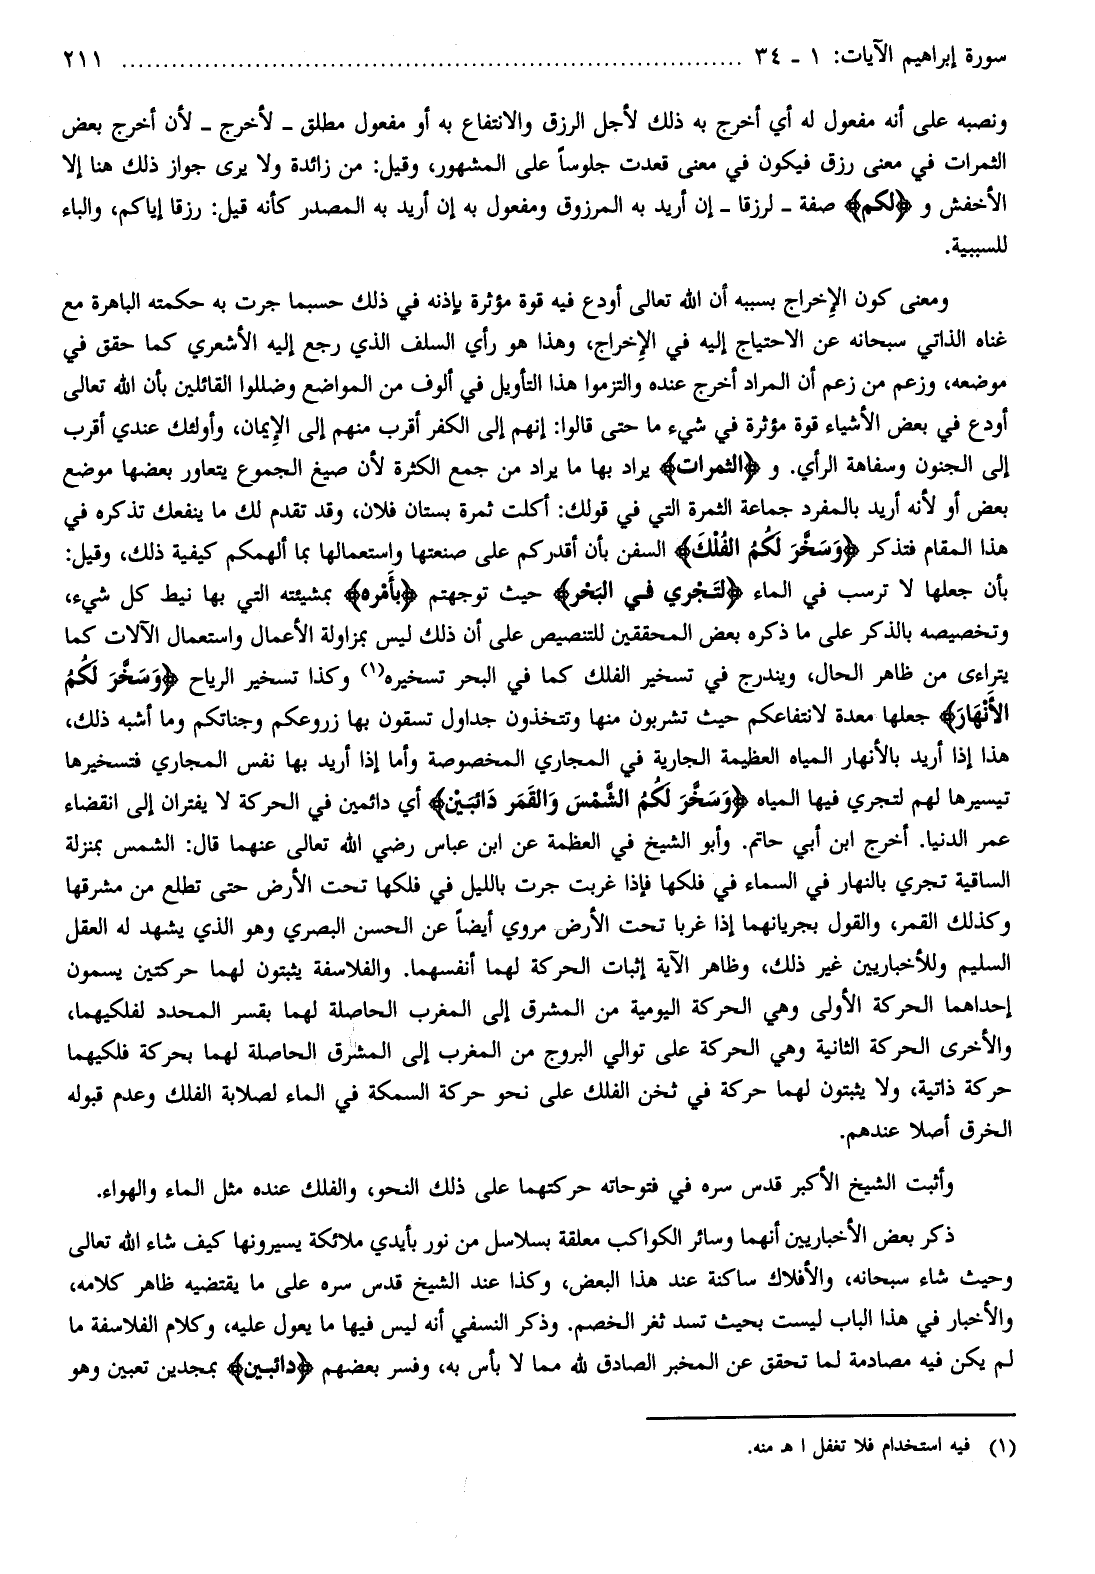 سورة إبراهيم الآيات: ١ ـ ٣٤ ........................................................................... ٢١١
ونصبه على أنه مفعول له أي أخرج به ذلك لأجل الرزق والانتفاع به أو مفعول مطلق ـ لأخرج ـ لأن أخرج بعض
الثمرات في معنى رزق فيكون في معنى قعدت جلوساً على المشهور، وقيل: من زائدة ولا يرى جواز ذلك هنا إلا
الأخفش و ﴿لكم﴾ صفة ـ لرزقا ـ إن أريد به المرزوق ومفعول به إن أريد به المصدر كأنه قيل: رزقا إياكم، والباء
للسببية.
ومعنى كون الإخراج بسببه أن الله تعالى أودع فيه قوة مؤثرة بإذنه في ذلك حسبما جرت به حكمته الباهرة مع
غناه الذاتي سبحانه عن الاحتياج إليه في الإخراج، وهذا هو رأي السلف الذي رجع إليه الأشعري كما حقق في
موضعه، وزعم من زعم أن المراد أخرج عنده والتزموا هذا التأويل في ألوف من المواضع وضللوا القائلين بأن الله تعالى
أودع في بعض الأشياء قوة مؤثرة في شيء ما حتى قالوا: إنهم إلى الكفر أقرب منهم إلى الإيمان، وأولئك عندي أقرب
إلى الجنون وسفاهة الرأي. و ﴿الثمرات﴾ يراد بها ما يراد من جمع الكثرة لأن صيغ الجموع يتعاور بعضها موضع
بعض أو لأنه أريد بالمفرد جماعة الثمرة التي في قولك: أكلت ثمرة بستان فلان، وقد تقدم لك ما ينفعك تذكره في
هذا المقام فتذكر ﴿وَسَخَّرَ لَكُمُ الفُلْكَ﴾ السفن بأن أقدركم على صنعتها واستعمالها بما ألهمكم كيفية ذلك، وقيل:
بأن جعلها لا ترسب في الماء ﴿لتَجْري في البَحْر﴾ حيث توجهتم ﴿بأَمْره﴾ بمشيئته التي بها نيط كل شيء،
وتخصيصه بالذكر على ما ذكره بعض المحققين للتنصيص على أن ذلك ليس بمزاولة الأعمال واستعمال الآلات كما
يتراءى من ظاهر الحال، ويندرج في تسخير الفلك كما في البحر تسخيره(١) وكذا تسخير الرياح ﴿وَسَخَّرَ لَكُمُ
الأَنْهَارَ﴾ جعلها معدة لانتفاعكم حيث تشربون منها وتتخذون جداول تسقون بها زروعكم وجناتكم وما أشبه ذلك،
هذا إذا أريد بالأنهار المياه العظيمة الجارية في المجاري المخصوصة وأما إذا أريد بها نفس المجاري فتسخيرها
تيسيرها لهم لتجري فيها المياه ﴿وَسَخَّرَ لَكُمُ الشَّمْسَ وَالقَمَر دَائبَيْن﴾ أي دائمين في الحركة لا يفتران إلى انقضاء
عمر الدنيا. أخرج ابن أبي حاتم. وأبو الشيخ في العظمة عن ابن عباس رضي الله تعالى عنهما قال: الشمس بمنزلة
الساقية تجري بالنهار في السماء في فلكها فإذا غربت جرت بالليل في فلكها تحت الأرض حتى تطلع من مشرقها
وكذلك القمر، والقول بجريانهما إذا غربا تحت الأرض مروي أيضاً عن الحسن البصري وهو الذي يشهد له العقل
السليم وللأخباريين غير ذلك، وظاهر الآية إثبات الحركة لهما أنفسهما. والفلاسفة يثبتون لهما حركتين يسمون
إحداهما الحركة الأولى وهي الحركة اليومية من المشرق إلى المغرب الحاصلة لهما بقسر المحدد لفلكيهما،
والأخرى الحركة الثانية وهي الحركة على توالي البروج من المغرب إلى المشرق الحاصلة لهما بحركة فلكيهما
حركة ذاتية، ولا يثبتون لهما حركة في ثخن الفلك على نحو حركة السمكة في الماء لصلابة الفلك وعدم قبوله
الخرق أصلا عندهم.
وأثبت الشيخ الأكبر قدس سره في فتوحاته حركتهما على ذلك النحو، والفلك عنده مثل الماء والهواء.
ذكر بعض الأخباريين أنهما وسائر الكواكب معلقة بسلاسل من نور بأيدي ملائكة يسيرونها كيف شاء الله تعالى
وحيث شاء سبحانه، والأفلاك ساكنة عند هذا البعض، وكذا عند الشيخ قدس سره على ما يقتضيه ظاهر كلامه،
والأخبار في هذا الباب ليست بحيث تسد ثغر الخصم. وذكر النسفي أنه ليس فيها ما يعول عليه، وكلام الفلاسفة ما
لم يكن فيه مصادمة لما تحقق عن المخبر الصادق لله مما لا بأس به، وفسر بعضهم ﴿دائبين﴾ بمجدين تعبين وهو
(١) فيه استخدام فلا تغفل ا هـ منه.